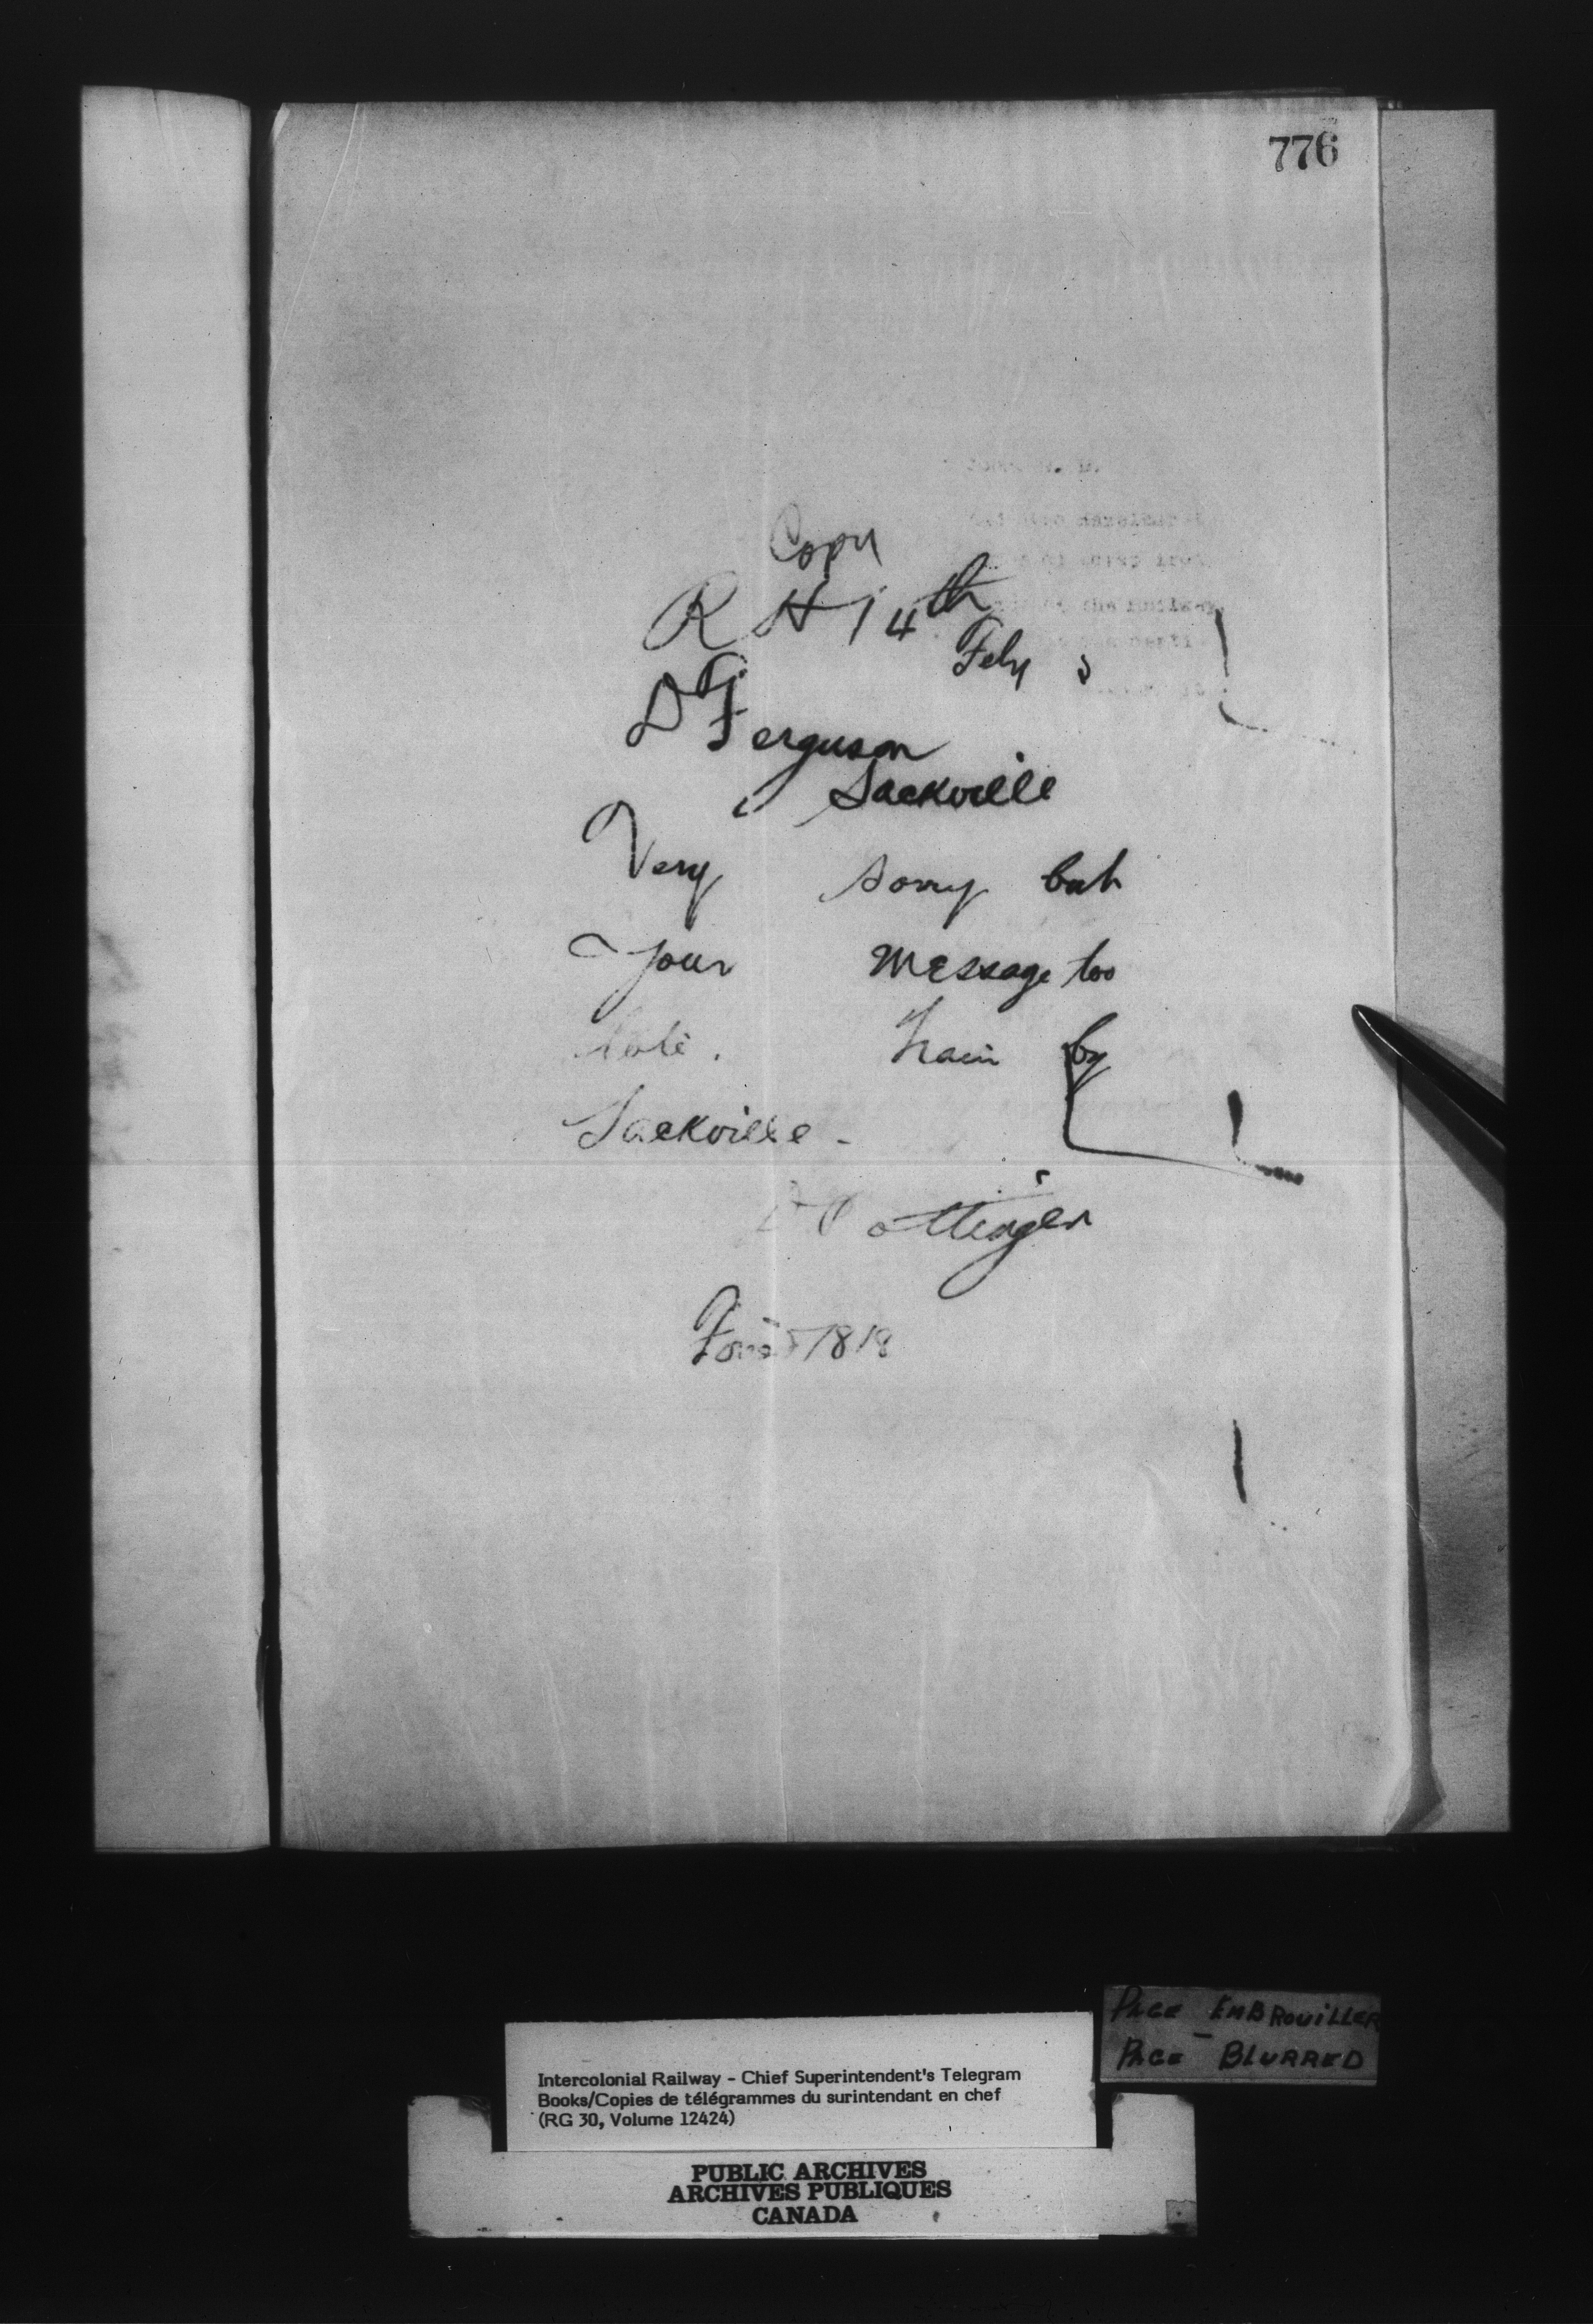 776
Copy
R H 14th
Feby
D Ferguson
Sackville
Very sorry but
your message too
late. Train by
Sackville -
D Pottinger
1818
Intercolonial Railway - Chief Superintendent's Telegram
Books/Copies de télégrammes du surintendant en chef
(RG 30, Volume 12424)
PUBLIC ARCHIVES
ARCHIVES PUBLIQUES
CANADA
PAGE EMBROUILLER
PAGE - BLURRED